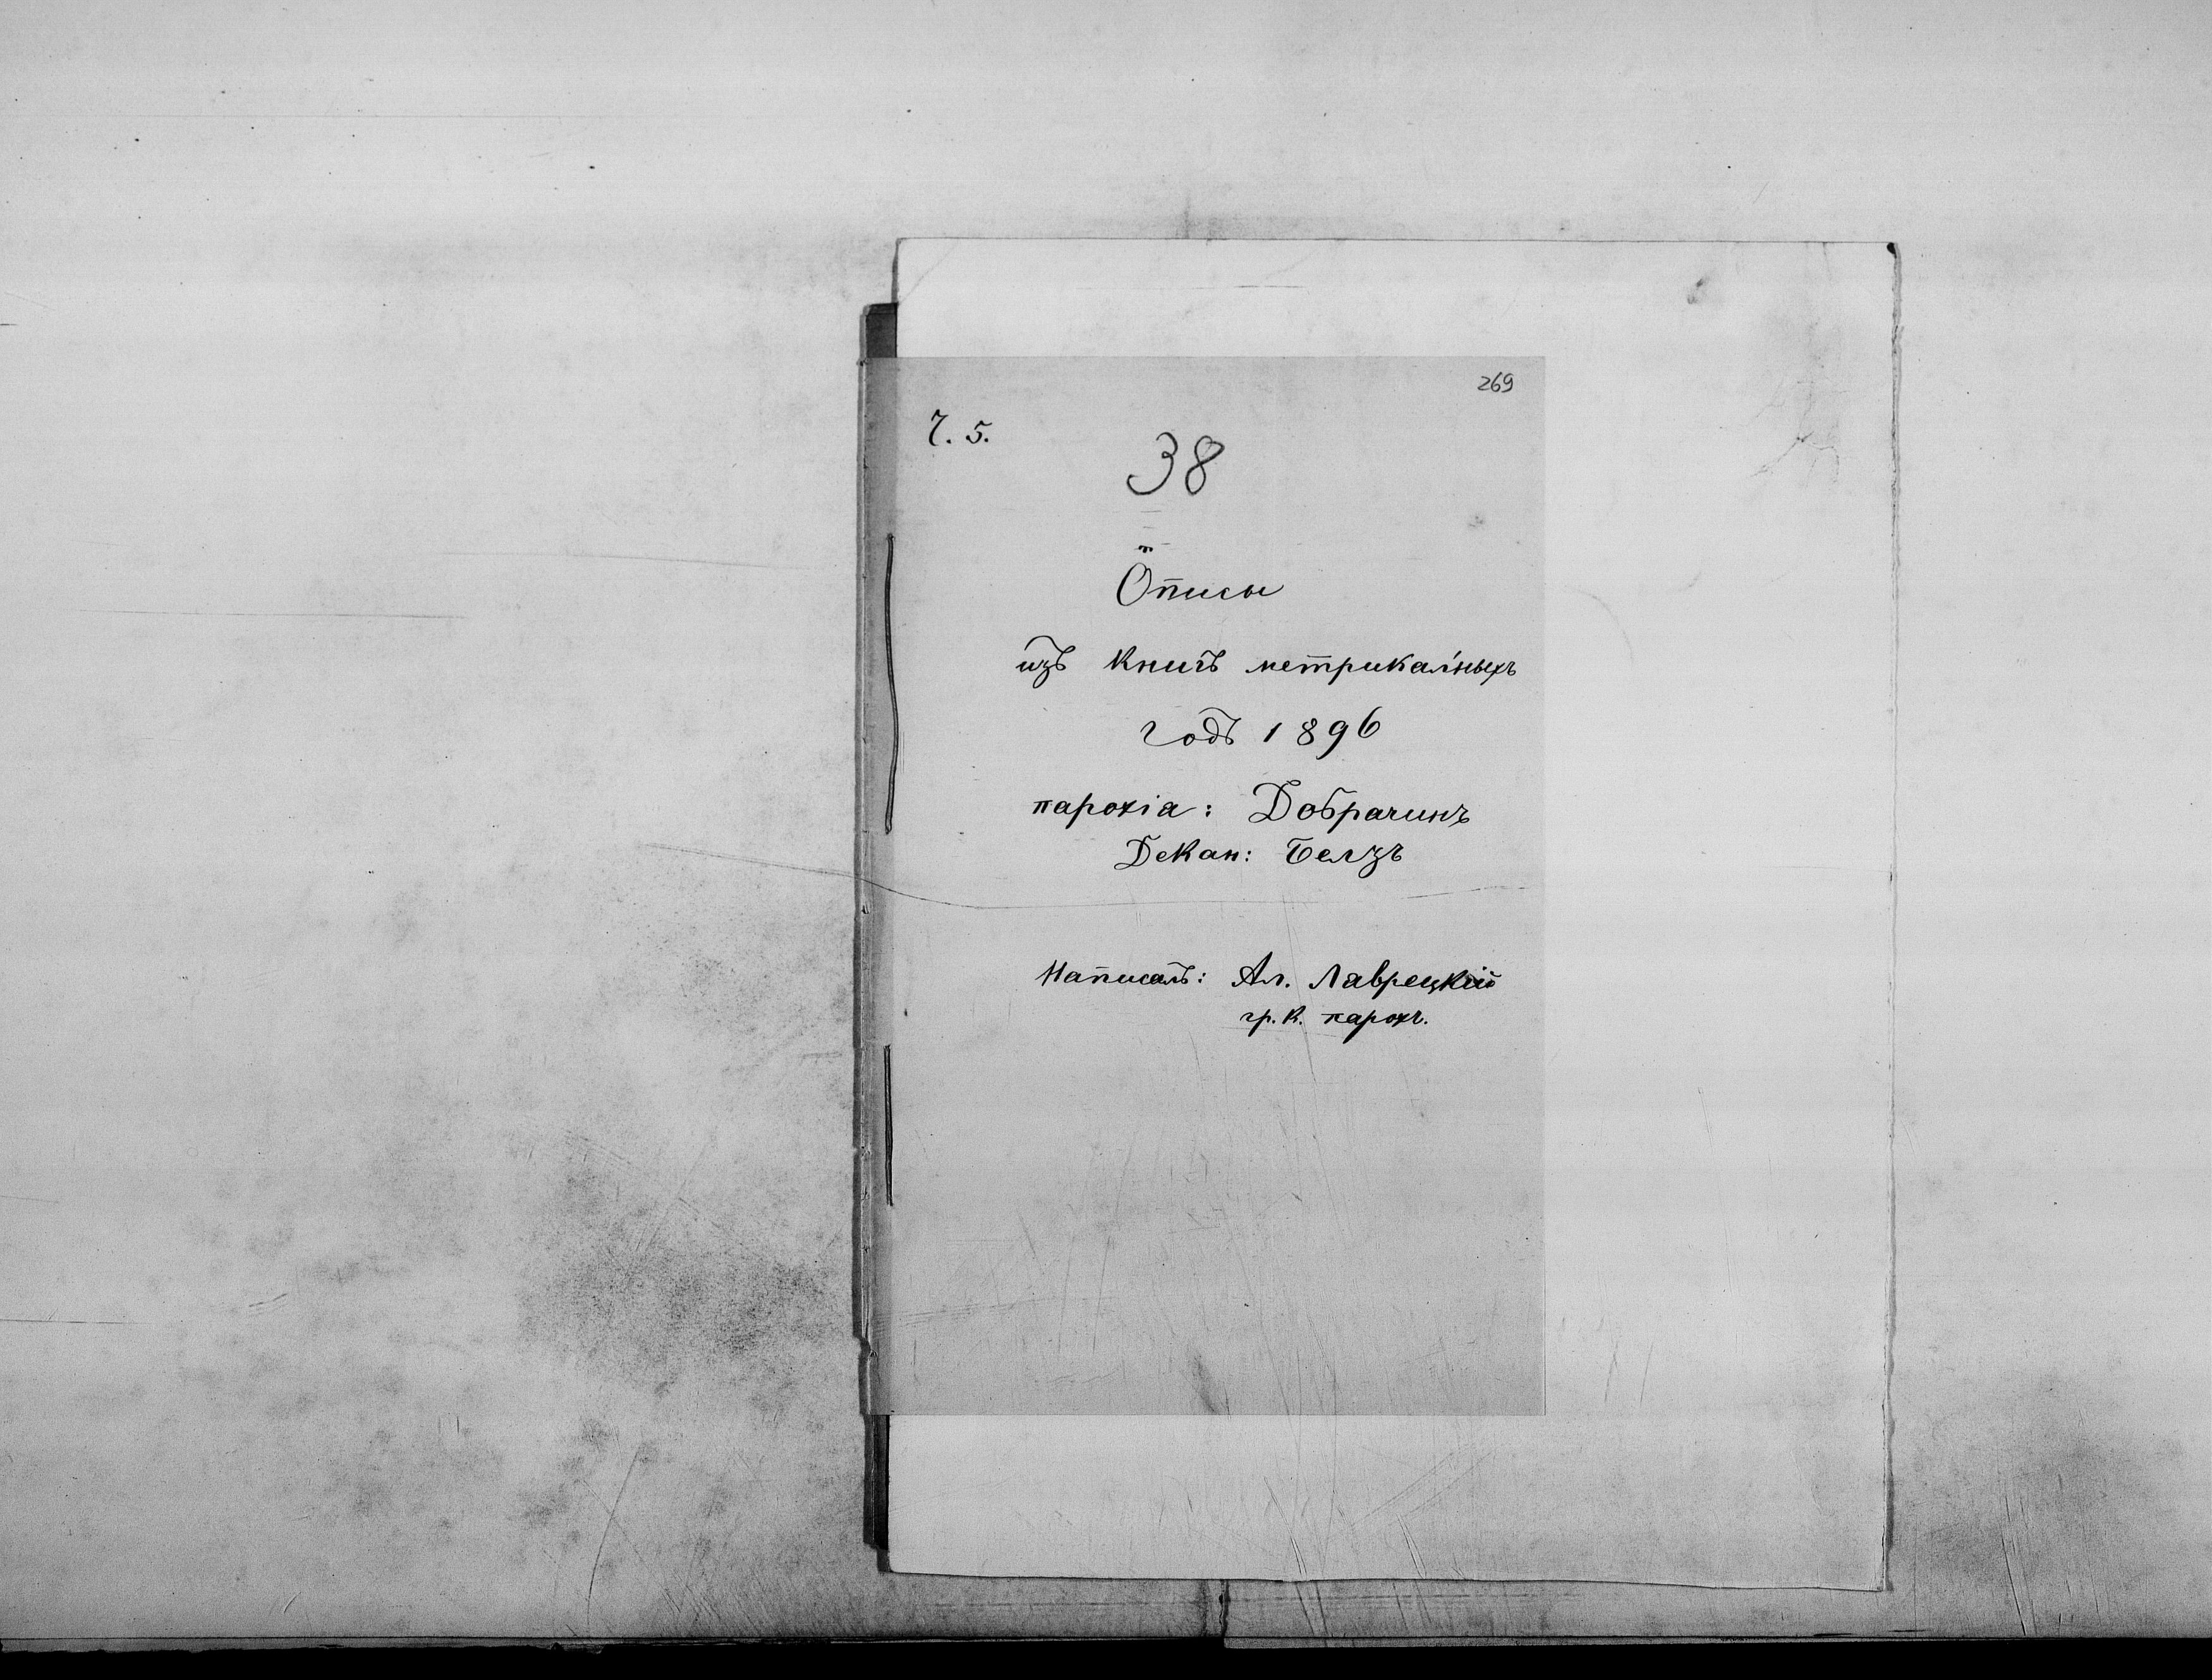 269
Ч. 5.
38
Ѿписы
изъ книгъ метрикал'ныхъ
годъ 1896
парохіа: Добрачинъ
Декан: Белзъ
Написалъ: Ал. Лаврецкій
гр. к. парохъ.